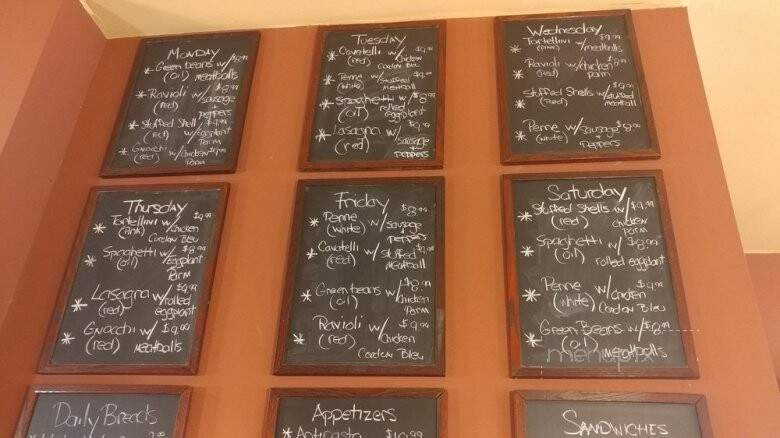 Monday
* Green beans w/ $8.99
(oil) meatballs
* Ravioli w/ $8.99
(red) sausage
+ peppers
* Stuffed Shell w/ $9.99
(red) eggplant
Parm
* Gnocchi w/ chicken $9.99
(red) Parm
Tuesday
* Cavatelli w/ $9.99
(red) chicken
Cordon Bleu
* Penne w/ $9.99
(white) stuffed
meatball
* Spaghetti w/ $8.99
(oil) rolled
eggplant
* Lasagna w/ $9.99
(red) Sausage
+ Peppers
Wednesday
* Tortellini w/ $9.99
(pink) meatballs
* Ravioli w/ chicken $8.99
(red) parm
* Stuffed Shells w/ stuffed $9.99
(red) meatball
* Penne w/ sausage $8.99
(white) + peppers
Thursday
* Tortellini w/ $9.99
(Pink) Chicken
Cordon Bleu
* Spaghetti w/ $8.99
(oil) Eggplant
Parm
* Lasagna w/ rolled $9.99
(red) eggplant
* Gnocchi w/ $9.99
(red) Meatballs
Friday
* Penne w/ $8.99
(white) sausage
+ peppers
* Cavatelli w/ $9.99
(red) stuffed
Meatball
* Green beans w/ $8.99
(oil) chicken
Parm
* Ravioli w/ $9.99
(red) Chicken
Cordon Bleu
Saturday
* Stuffed Shells w/ $9.99
(red) chicken
Parm
* Spaghetti w/ $8.99
(oil) rolled eggplant
* Penne w/ $9.99
(white) chicken
Cordon Bleu
* Green Beans w/ $8.99
(oil) Meatballs
menupix
Daily Breads
Appetizers
* Antipasto $10.99
Sandwiches